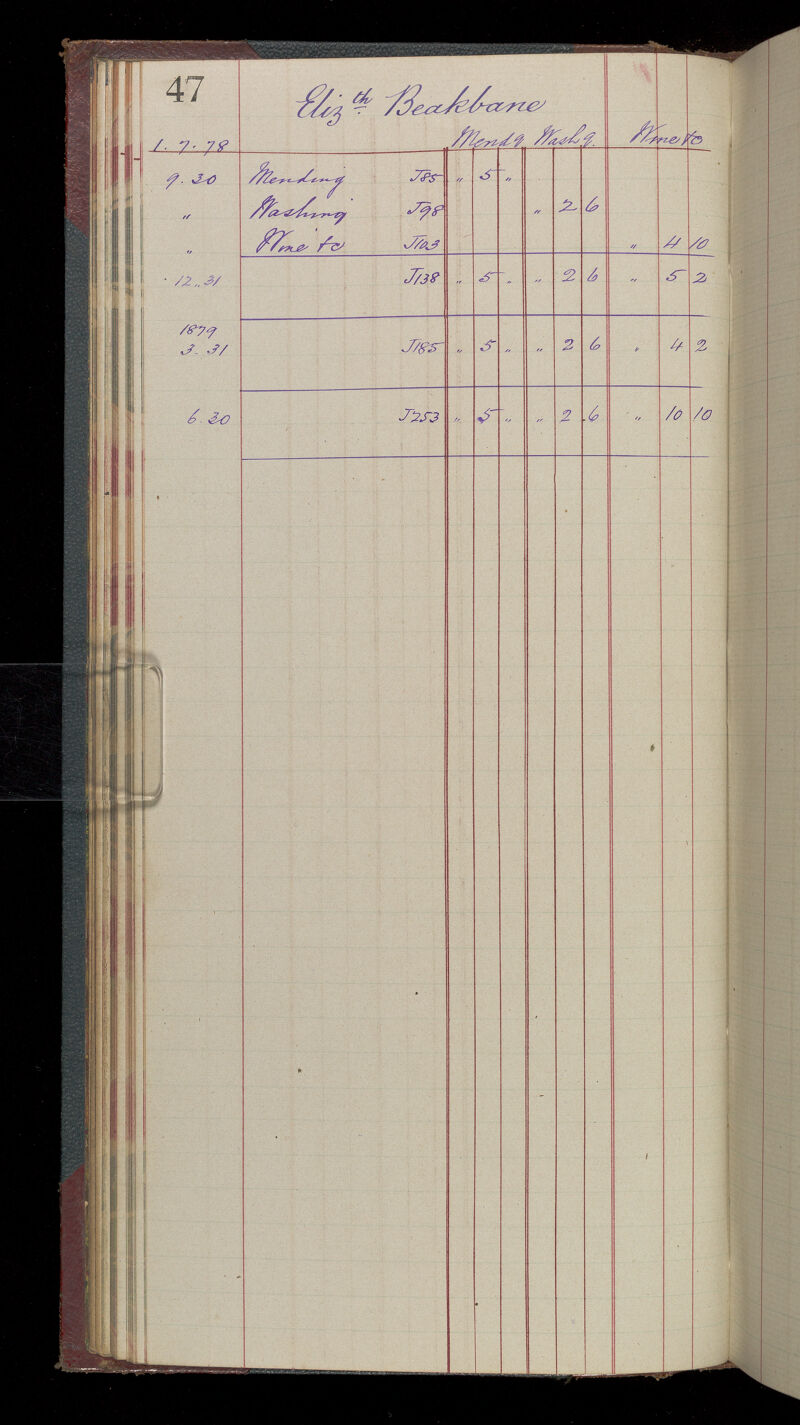 47
Elizth Beakbane
1. 7. 78 Mendg Washg. Wine &c
9. 30 Mending J85 " 5 "
" Washing J98 " 2 6
" Wine &c J123 " 4 10
12 " 31 J138 " 5 " " 2 6 " 5 2
1879
3. 31 J185 " 5 " " 2 6 " 4 2
6. 30 J253 " 5 " " 2 6 " 10 10